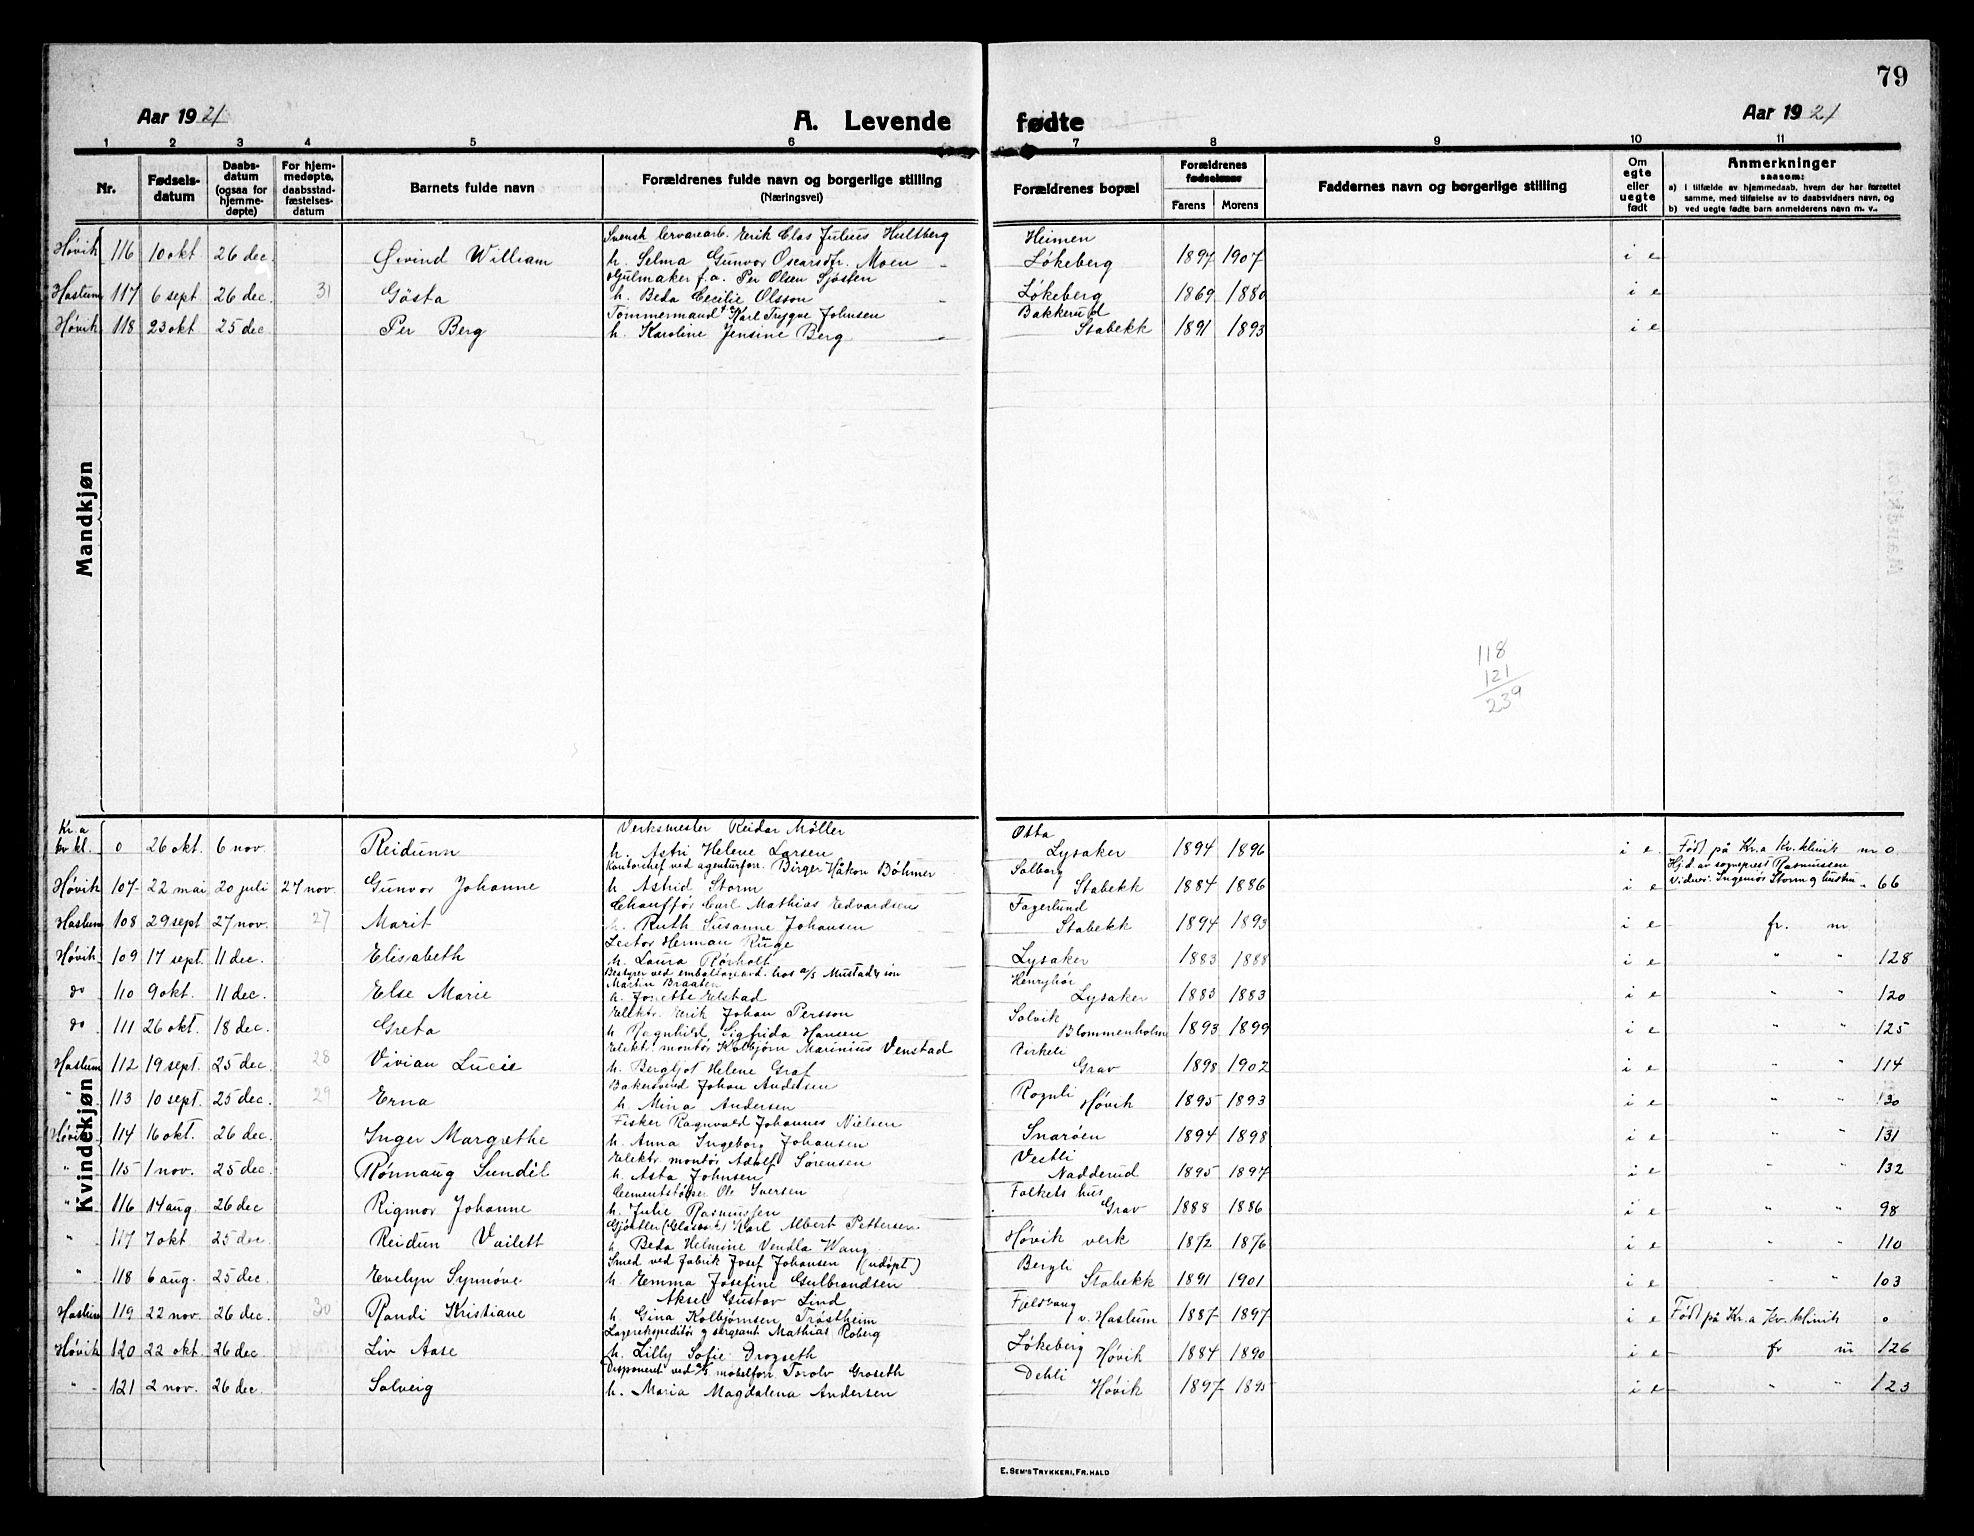 79
Aar 1921
A. Levende fødte
Aar 1921
1 2 3 4 5 6 7 8 9 10 11
Nr.
Fødsels-
datum
Daabs-
datum
(ogsaa for
hjemme-
døpte)
For hjem-
medøpte,
daabsstad-
fæstelses-
datum
Barnets fulde navn
Forældrenes fulde navn og borgerlige stilling
(Næringsvei)
Forældrenes bopæl
Forældrenes
fødselsaar
Farens Morens
Faddernes navn og borgerlige stilling
Om
egte
eller
uegte
født
Anmerkninger
saasom:
a) i tilfælde av hjemmedaab, hvem der har forrettet
samme, med tilføielse av to daabsvidners navn, og
b) ved uegte fødte barn anmelderens navn m. v..
Mandkjøn
Svensk Erik Clas Julius Hultberg Heimen
Høvik 116 10 okt 26 dec. Øivind William h. Selma Gunvor Oscarsdtr. Moen Løkeberg 1897 1907 i e
Hjulmaker f.a. Per Olsen Sjösten
Haslum 117 6 sept 26 dec. 31 Gösta h. Beda Cecilie Olsson Løkeberg 1869 1880 i e
Tømmermand Karl Trygve Johnsen Bakkerud
Høvik 118 23 okt 25 dec Per Berg h. Karoline Jensine Berg Stabekk 1891 1893 i e
118
121
239
Kvindekjøn
Kr.a Verksmester Reidar Möller Otta
kv kl. 0 26 okt. 6 nov. Reidunn h. Astri Helene Larsen Lysaker 1894 1896 i e. Født på Kr.a Kv.klinik nr 0.
Kontorchef ved agenturforr. Birger Håkon Böhmer Solborg Hj.d. av sogneprest Rasmussen
Høvik 107 22 mai 20 juli 27 nov. Gunvor Johanne h Astrid Storm Stabekk 1884 1886 i e Vidner: Ingeniør Storm og hustru 66
Chauffør Carl Mathias Edvardsen Fagerlund
Haslum 108 29 sept 27 nov. 27 Marit h. Ruth Susanne Johansen Stabekk 1894 1893 i e fr. nr
Lektor Herman Ruge
Høvik 109 17 sept. 11 dec. Elisabeth h. Laura Rørholt Lysaker 1883 1888 i e " " 128
Bestyrer ved hos a/s Mustad & søn
Martin Braaten Henryhøi
do 110 9 okt. 11 dec. Else Marie h. Jonette Elstad Lysaker 1883 1883 i e " " 120
Elektr. Erik Johan Persson Solvik
do 111 26 okt. 18 dec. Greta h Ragnhild Sigfrida Hansen Blommenholm 1893 1899 i e " " 125
Elektr. montør Kolbjørn Marinius Venstad Virkeli
Haslum 112 19 sept. 25 dec. 28 Vivian Lucie h. Bergljot Helene Graf Grav 1898 1902 i e " " 114
Bakersvend Johan Andersen Rognli
" 113 10 sept. 25 dec. 29 Erna h. Mina Andersen Høvik 1895 1893 i e " " 130
Fisker Ragnvald Johannes Nielsen
Høvik 114 16 okt. 26 dec. Inger Margrethe h. Anna Ingeborg Johansen Snarøen 1894 1898 i e " " 131
Elektr. montør Adolf Sørensen Vestli
" 115 1 nov. 25 dec. Rønnaug Sundil h. Asta Johnsen Nadderud 1895 1897 i e " " 132
Cementstøper Ole Iversen Folkets hus
" 116 14 aug. 26 dec Rigmor Johanne h. Julie Rasmussen Grav 1888 1886 i e " " 98
Karl Albert Pettersen
" 117 7 okt 25 dec. Reidun Vailett h Beda Helmine Vendla Wang Høvik verk 1872 1876 i e " " 110
Smed ved fabrik Josef Johansen (udøpt) Bergli
" 118 6 aug. 25 dec. Evelyn Synnøve h. Emma Josefine Gulbrandsen Stabekk 1891 1901 i e " " 103
Aksel Gustav Lind Fjeldvang
Haslum 119 22 nov. 26 dec. 30 Randi Kristiane h. Gina Kolbjørnsen Trøstheim v. Haslum 1887 1897 i e Født på Kr.a Kv. klinik 0
Lagerekspeditør og sergeant Mathias Roberg
Høvik 120 22 okt. 26 dec Liv Aase h. Lilly Sofie Drogseth Løkeberg Høvik 1884 1890 i e fr nr 126
Disponent ved a/s møbelforr Torolv Groseth Dehli
" 121 2 nov. 26 dec. Solveig h. Maria Magdalena Andersen Høvik 1897 1895 i e " " 123
E. SEM'S TRYKKERI, FR. HALD